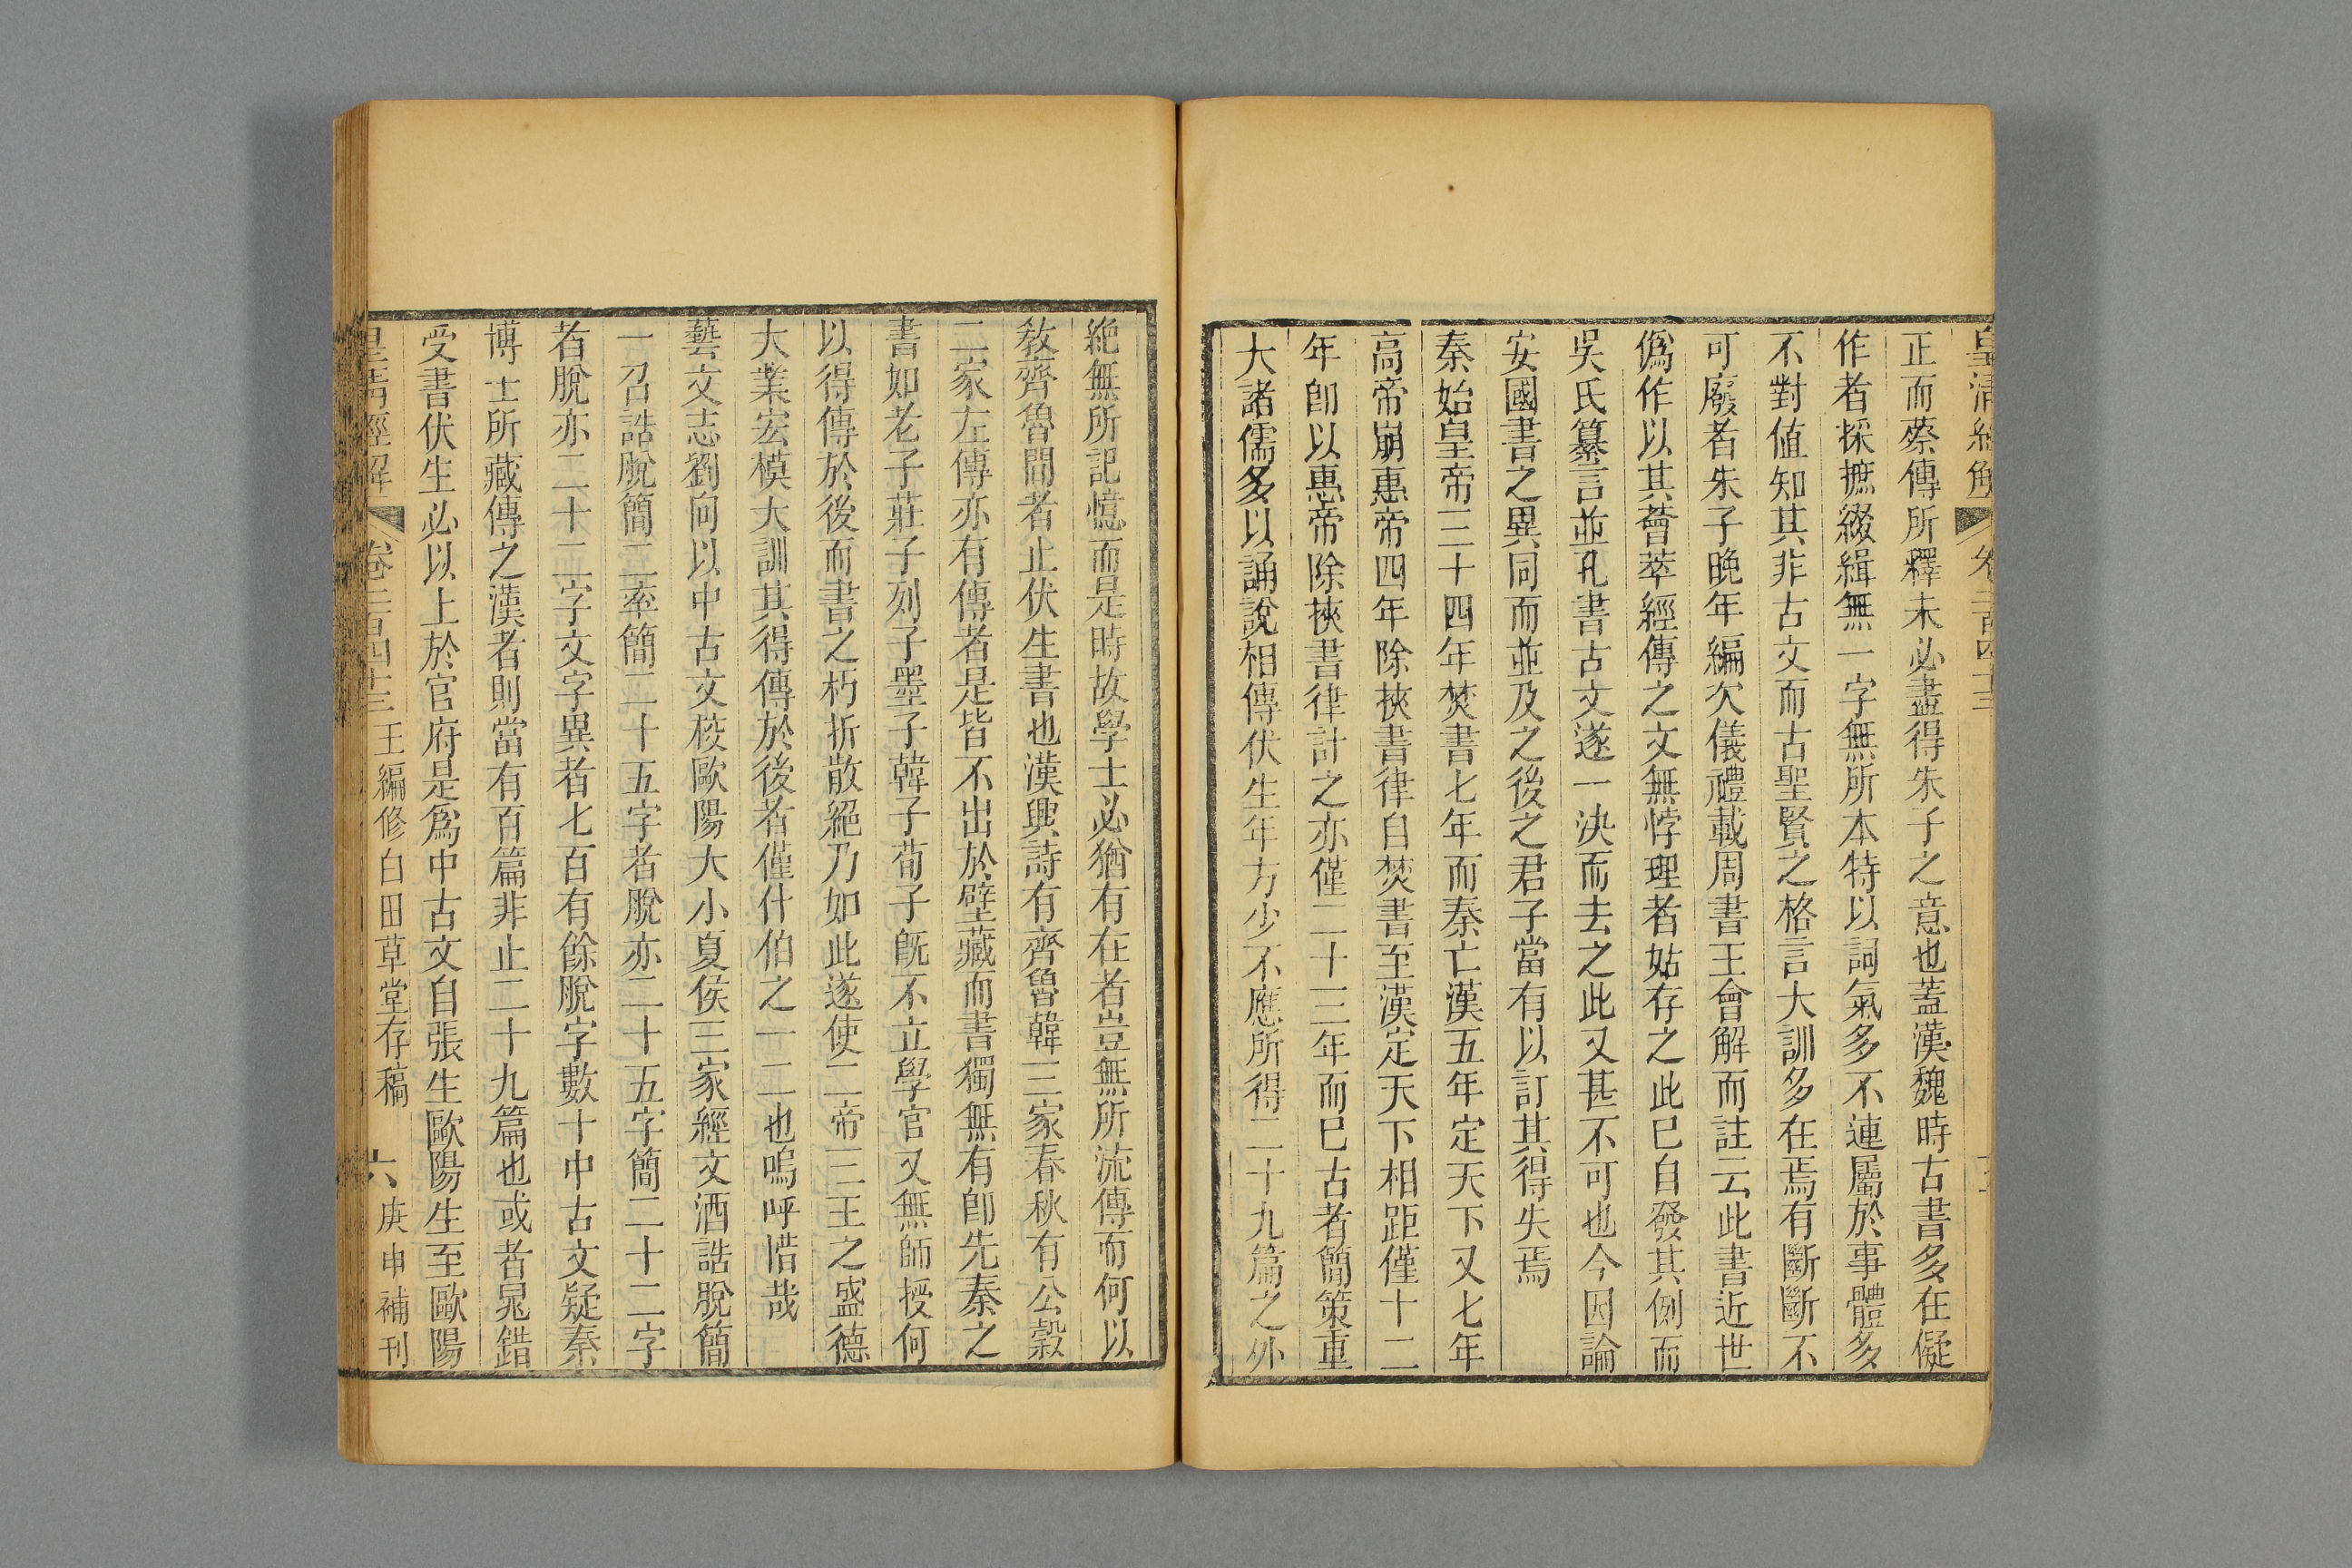 皇清經解 卷二百四十三
正而蔡傳所釋未必盡得朱子之意也蓋漢魏時古書多在儗
作者採摭綴緝無一字無所本特以詞氣多不連屬於事體多
不對値知其非古文而古聖賢之格言大訓多在焉有斷斷不
可廢者朱子晚年編次儀禮載周書王會解而註云此書近世
僞作以其薈萃經傳之文無悖理者姑存之此已自發其例而
吳氏纂言並孔書古文遂一決而去之此又甚不可也今因論
安國書之異同而並及之後之君子當有以訂其得失焉
秦始皇帝三十四年焚書七年而秦亡漢五年定天下又七年
高帝崩惠帝四年除挾書律自焚書至漢定天下相距僅十二
年卽以惠帝除挾書律計之亦僅二十三年而已古者簡策重
大諸儒多以誦說相傳伏生年方少不應所得二十九篇之外
絕無所記憶而是時故學士必猶有在者豈無所流傳而何以
敎齊魯間者止伏生書也漢興詩有齊魯韓三家春秋有公穀
二家左傳亦有傳者是皆不出於壁藏而書獨無有卽先秦之
書如老子莊子列子墨子韓子荀子旣不立學官又無師授何
以得傳於後而書之朽折散絕乃如此遂使二帝三王之盛德
大業宏模大訓其得傳於後者僅什伯之一二也嗚呼惜哉
藝文志劉向以中古文校歐陽大小夏侯三家經文酒誥脫簡
一召誥脫簡二率簡二十五字者脫亦二十五字簡二十二字
者脫亦二十二字文字異者七百有餘脫字數十中古文疑秦
博士所藏傳之漢者則當有百篇非止二十九篇也或者晁錯
受書伏生必以上於官府是爲中古文自張生歐陽生至歐陽
皇淸經解 卷二百四十三 王編修白田草堂存稿 六 庚申補刊